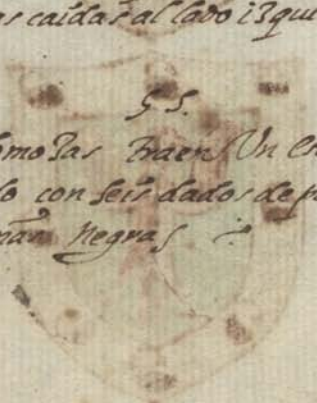 as caidas al lado izqui
§ 5.
omozas traen Un es
lo con seis dados de p
negras